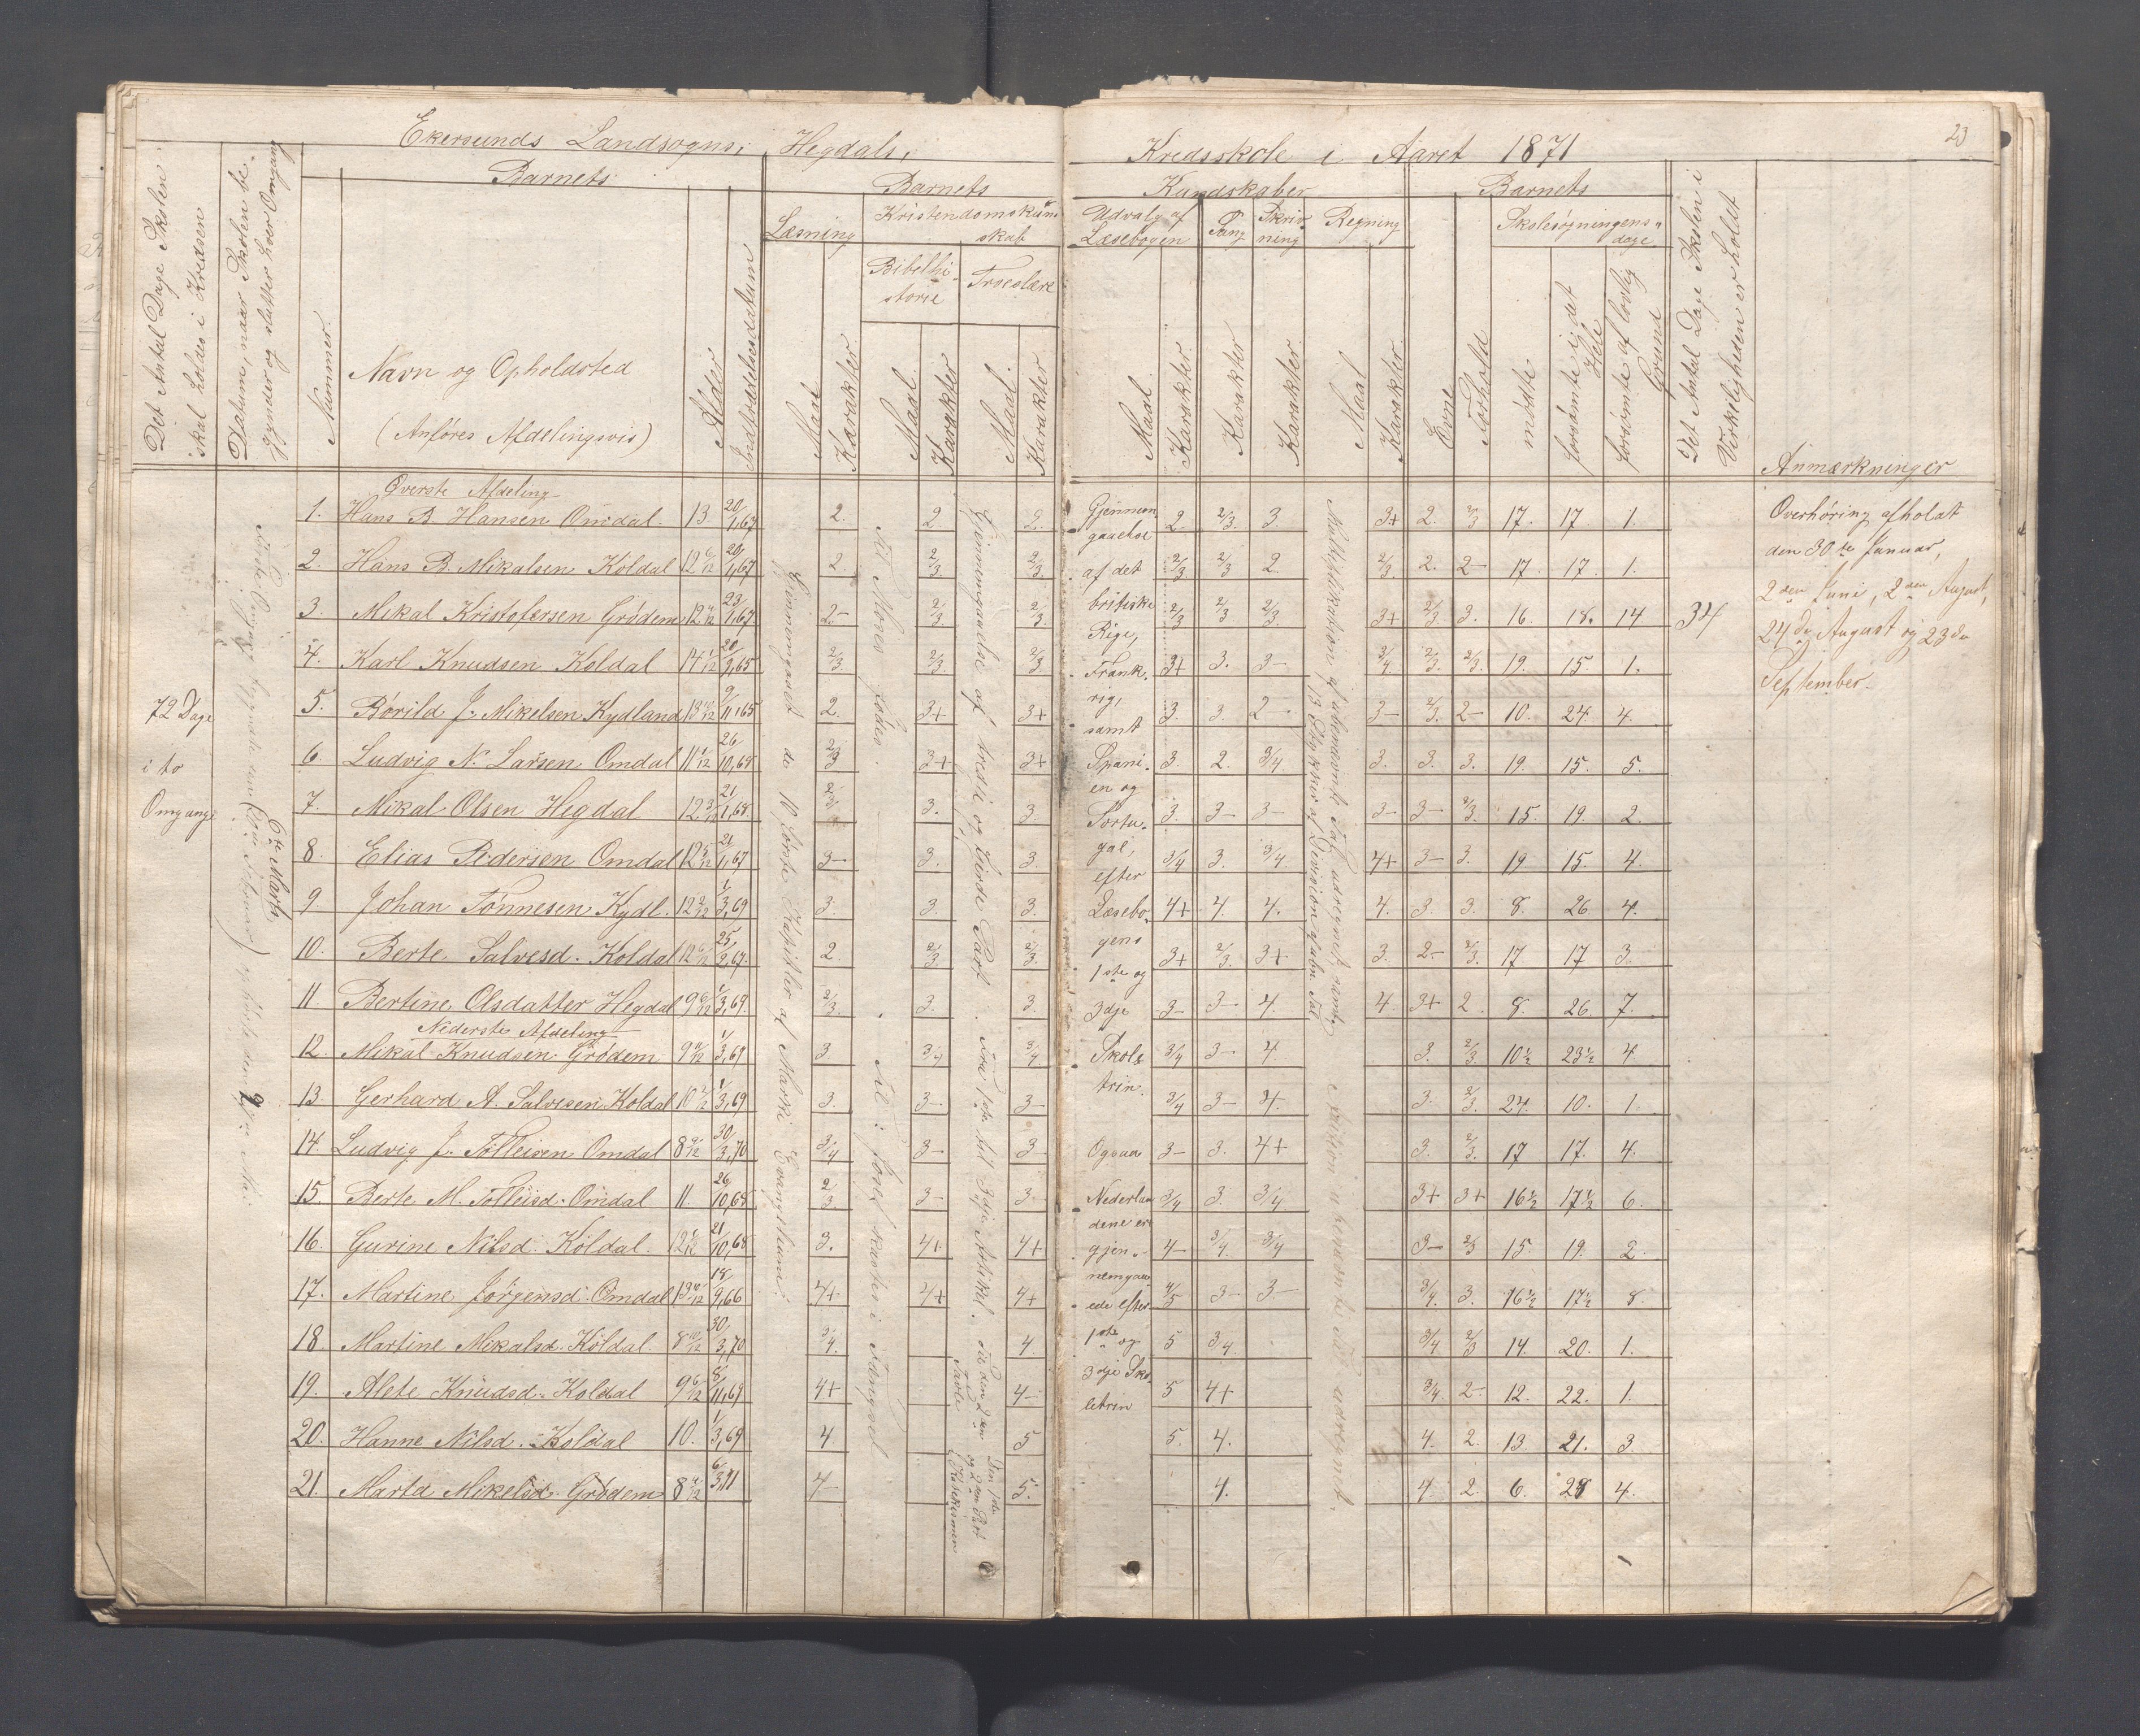 Ekersunds Landsogns, Hegdals,
Kredsskole i Aaret 1871
23
Det Antal Dage Skolen skal holdes i Kredsen
Datum, naar Skolen begynder og slutter hver Omgang
Barnets
Nummer
Navn og Opholdsted
(Anføres Afdelingsvis)
Alder
Indtrædelsesdatum
Barnets
Læsning
Maal
Karakter
Kristendomskundskab
Bibelhistorie
Maal
Karakter
Troeslære
Maal.
Karakter
Kundskaber
Udvalg af Læsebogen
Maal.
Karakter.
Sang
Karakter
Skrivning
Karakter.
Regning
Maal
Karakter.
Barnets
Evne
Forhold
Skolesøgningensdage
mødte
forsømte i det Hele
forsømte af lovlig Grund
Det Antal Dage Skolen i Virkeligheden er holdt
Anmærkninger
72 Dage
i to
Omgange
Øverste Afdeling
1. Hans B. Hansen Omdal. 13 20/1,67 2. 2 2. 2. 2/3. 3 3+ 2. 2/3 17. 17. 1.
2. Hans B. Mikalsen Koldal 12 6/12 20/1,67 2. 2/3. 2/3. 2/3. 2/3 2. 2/3. 2. 2- 17. 17. 1.
3. Mikal Kristofersen Grødem 12 23/1,67 2- 2/3. 2/3. 2/3 2/3 2/3. 3+ 2/3 3. 16. 18. 14 34
4. Karl Knudsen Koldal 14 1/12 20/2,65 2/3 2/3. 2/3. 3+ 3. 3- 3/4. 2/3. 2/3. 19. 15. 1.
5. Børild J. Mikelsen Kydland 13 9/11,65 2. 3+ 3+ 3. 3. 2- 3- 2/3. 2- 10. 24. 4.
6. Ludvig N. Larsen Omdal 11 1/12 26/10,68 2/3 3+ 3+ 3. 2. 3/4 3. 3. 3. 19. 15. 5.
7. Mikal Olsen Hegdal 12 3/12 21/1,68 2/3 3. 3. 3. 3- 3- 3- 3- 2/3. 15. 19. 2.
8. Elias Pedersen Omdal 12 5/12 21/1,67 3- 3. 3. 3/4 3. 3/4. 4+ 3- 3. 19 15. 4.
9. Johan Tønnesen Kydl. 12 1/3,69 3. 3. 3. 4+ 4. 4. 4. 3. 3. 8. 26 4.
10. Berte Salvesd. Koldal 12 6/12 25/2,67. 2. 2/3 2/3. 3+ 2/3. 3+ 3. 2- 2/3. 17. 17 3.
11 Bertine Olsdatter Hegdal 9 6/12 1/3,69. 2/3. 3. 3. 3- 3- 4. 4 3+ 2. 8. 26. 7.
Nederste Afdeling
12. Mikal Knudsen Grødem 9 1/3,69 3 3/4 3/4 3/4 3- 4. 3. 2/3. 10½ 23½ 4
13. Gerhard A. Salvesen Koldal 10 1/3,69 3. 3- 3- 3/4 3- 4. 3. 2/3. 24. 10. 1.
14. Ludvig J. Tolleisen Omdal 8 30/3,70 3/4 3- 3 3- 3. 4+ 3. 2/3. 17 17. 4.
15. Berte M. Tolleisd. Omdal 11. 26/10,68 2/3 3- 3 3/4 3. 3/4 3+ 3+ 16½ 17½ 6.
16. Gurine Nilsd. Koldal. 12 21/10,68 3. 4+ 4+ 4- 3/4. 3/4 3- 2/3 15. 19. 2.
17. Martine Jørgensd. Omdal 13 18/9,66 4+ 4+ 4+ 4/5 3- 3- 3/4. 3. 16½ 17½ 8.
18. Martine Mikalsd. Koldal. 8 10/12 30/3,70 3/4. 4. 5 3/4. 3/4 2/3 14. 20. 1.
19. Alete Knudsd. Koldal 9 6/12 8/11,69 4+ 4- 5 4+ 3/4. 2- 12. 22. 1.
20. Hanne Nilsd. Koldal 10. 1/3,69 4. 5 5. 4. 4. 2. 13. 21. 3.
21. Marta Mikelsd. Grødem 8 6/3,71 4- 5. 4. 4. 2. 6. 28 4.
Gjennemgaaelse de 10 første Kapitler af Marki Evangelium.
Til Moses' Fødes.
Til: Josef kastes i Fængsel
Gjennemgaaelse af tredie og fjerde Part.
Fra 1ste til 3dje Artikel.
Den 1ste og 2den Part
Gjennem-
gaaelse
af det
britiske
Rige,
Frank-
rig,
samt
Spani-
en og
Portu-
gal,
efter
Læsebo-
gens
1ste og
3dje
Skole-
trin.
Ogsaa
Nederlan
dene er
gjen-
nemgaa-
ede efter
1ste og
3dje Sko-
letrin
Overhøring afholdt
den 30te Januar,
2den Juni, 2den August,
24de August og 23de
September.